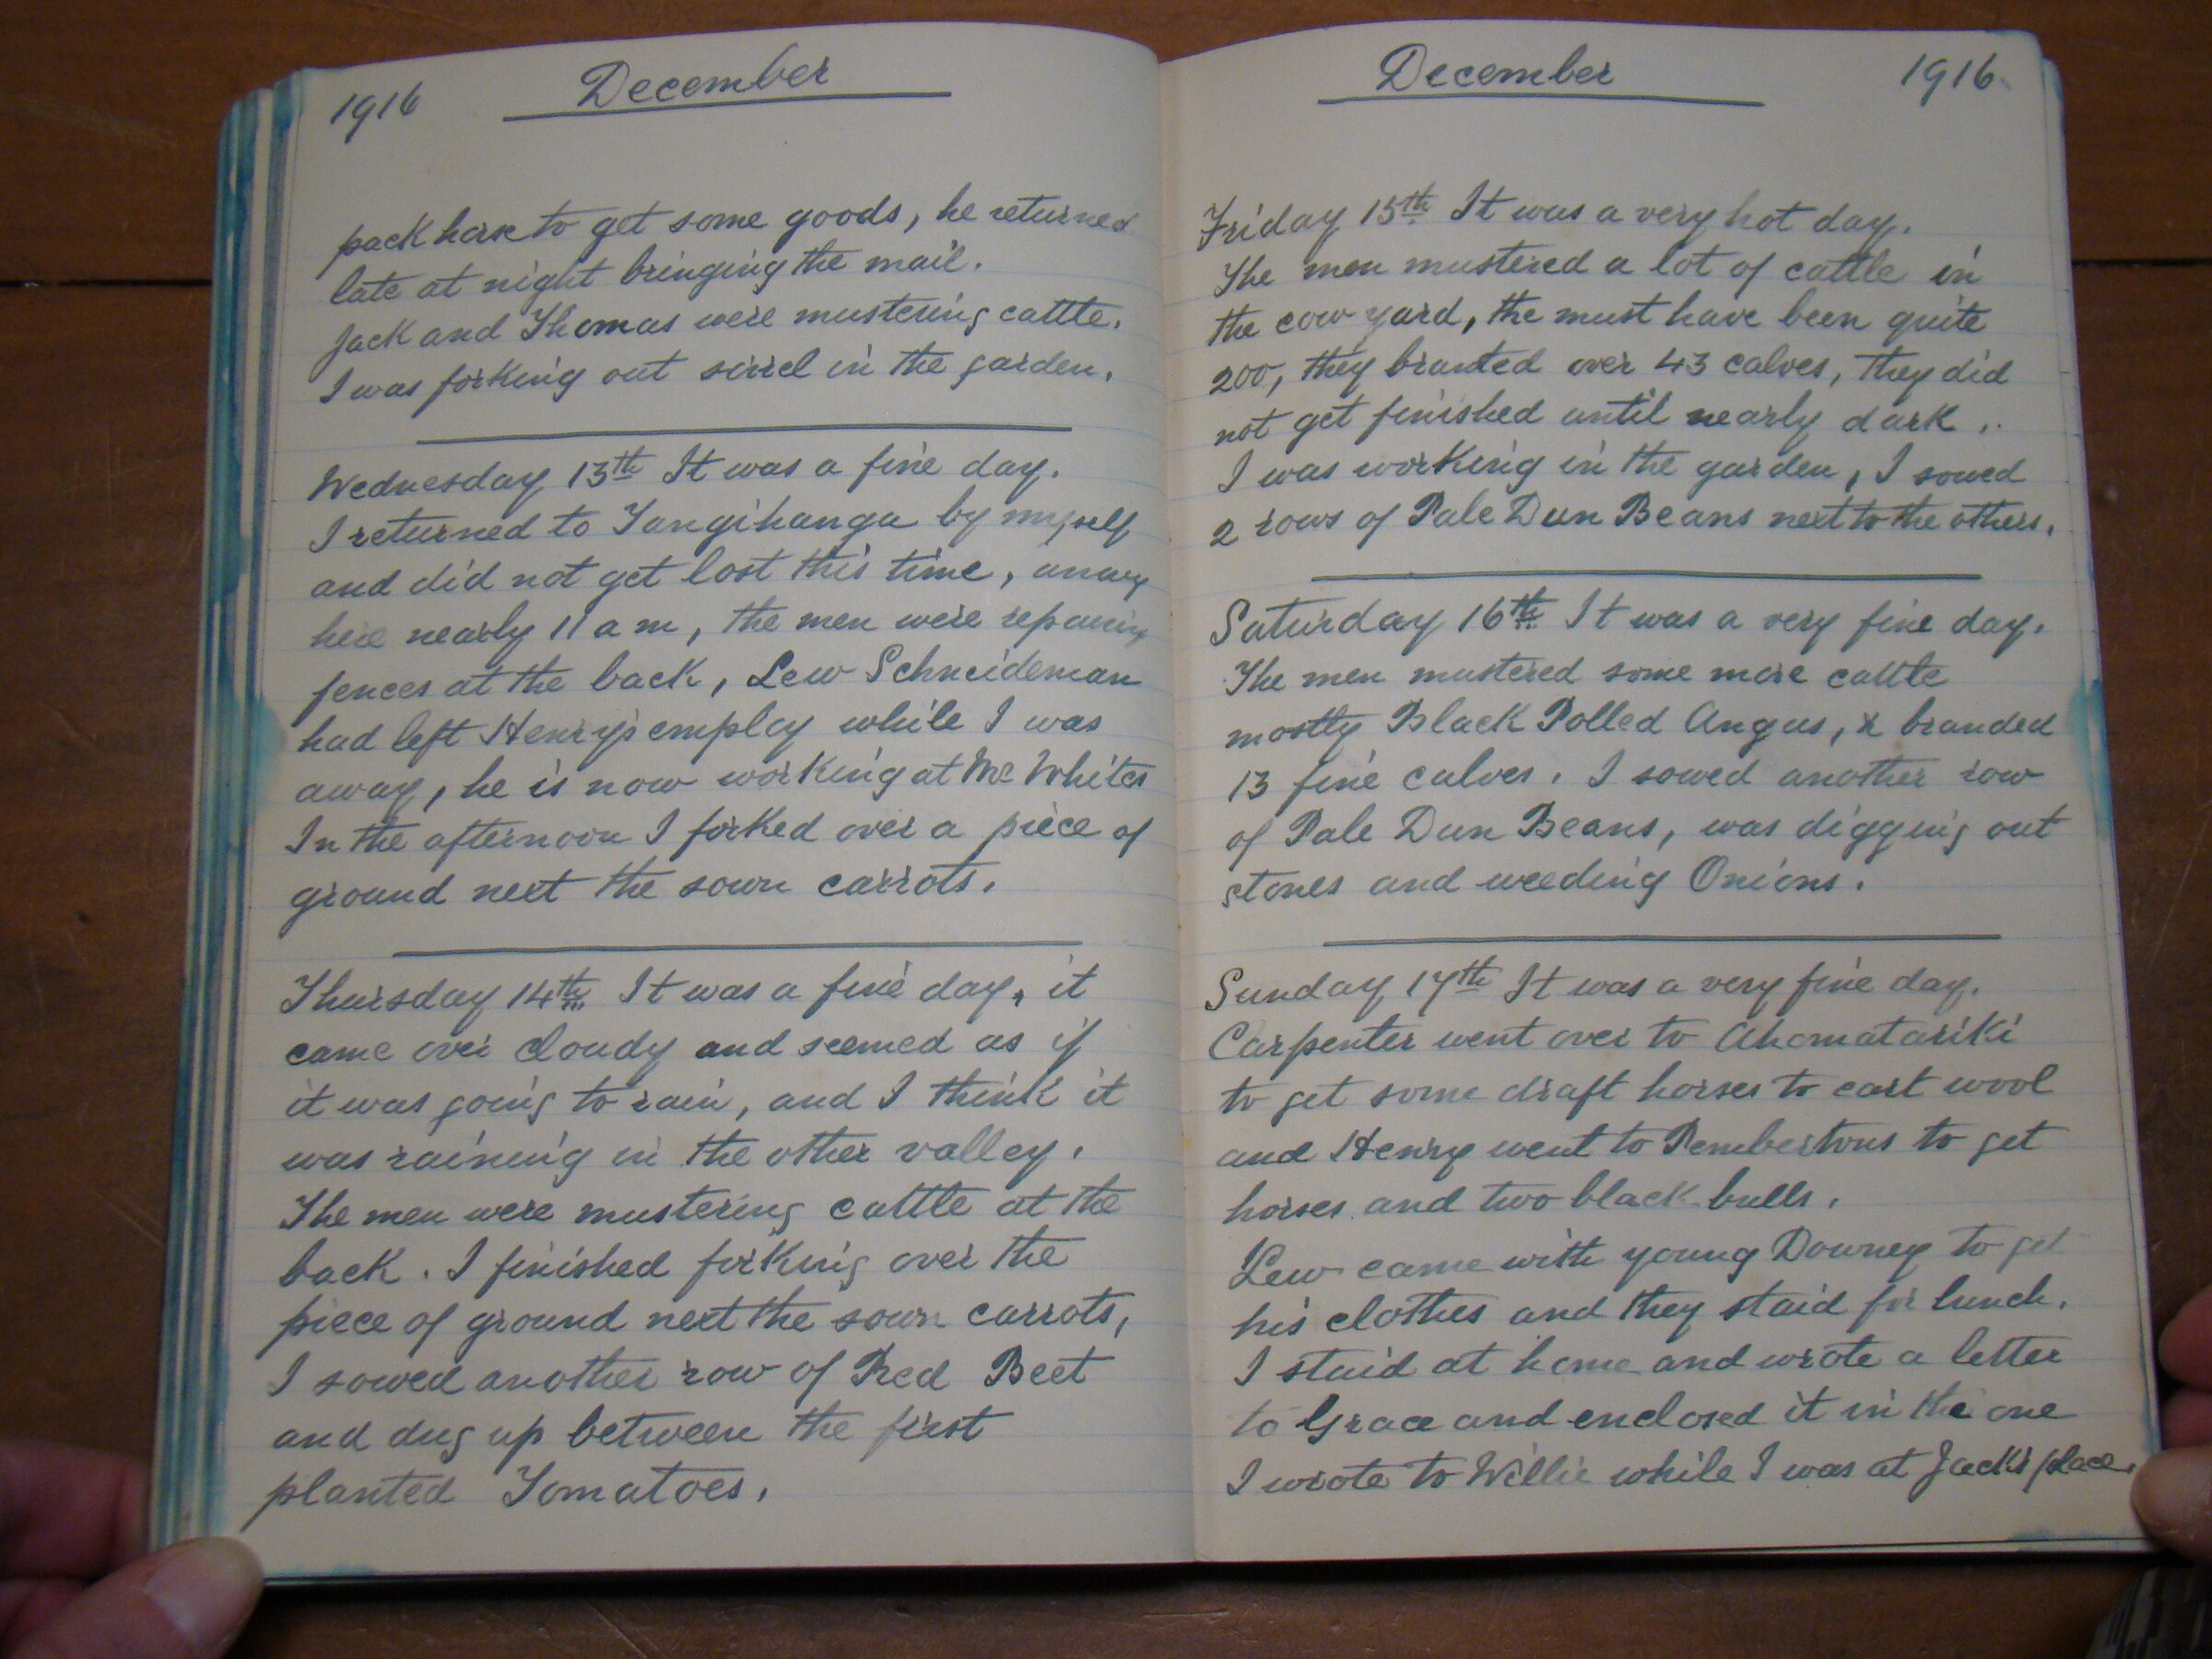 1916 December
pack horse to get some goods, he returned
late at night bringing the mail.
Jack and Thomas were mustering cattle.
I was forking out sirrel in the garden.
Wednesday 13th It was a fine day.
I returned to Tangihanga by myself
and did not get lost this time,
here nearly 11 am, the men were repairing
fences at the back, Lew Schneideman
had left Henry's employ while I was
away, he is now working at Mc Whites
In the afternoon I forked over a piece of
ground next the sown carrots.
Thursday 14th It was a fine day, it
came over cloudy and seemed as if
it was going to rain, and I think it
was raining in the other valley.
The men were mustering cattle at the
back. I finished forking over the
piece of ground next the sown carrots,
I sowed another row of Red Beet
and dug up between the first
planted Tomatoes.
December 1916
Friday 15th It was a very hot day.
The men mustered a lot of cattle in
the cow yard, the must have been quite
200, they branted over 43 calves, they did
not get finished until nearly dark.
I was working in the garden, I sowed
2 rows of Pale Dun Beans next to the others.
Saturday 16th It was a very fine day.
The men mustered some more cattle
mostly Black Polled Angus, & branded
13 fine calves. I sowed another row
of Pale Dun Beans, was digging out
stones and weeding Onions.
Sunday 17th It was a very fine day.
Carpenter went over to Ahomatariki
to get some draft horses to cart wool
and Henry went to Pembertons to get
horses and two black bulls.
Lew came with young Downey to get
his clothes and they staid for lunch.
I staid at home and wrote a letter
to Grace and enclosed it in the one
I wrote to Willie while I was at Jack's place.